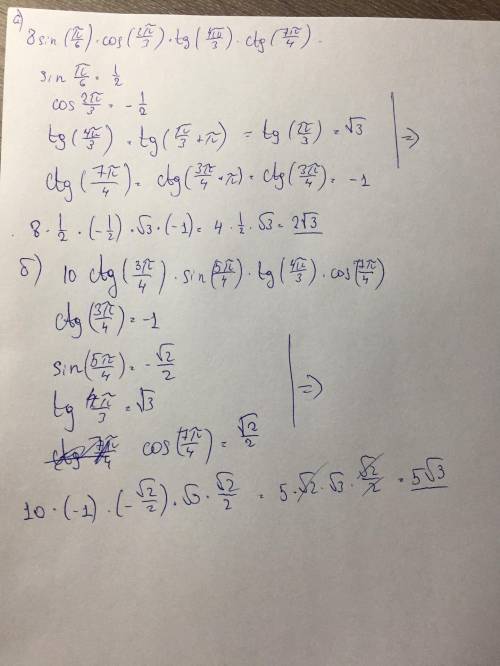 а)
8 sin(π/6) · cos(2π/3) · tg(4π/3) · ctg(7π/4).
sin π/6 = 1/2
cos 2π/3 = - 1/2
tg(4π/3) = tg(π/3 + π) = tg(π/3) = √3
ctg(7π/4) = ctg(3π/4 + π) = ctg(3π/4) = -1
=>
8 · 1/2 · (-1/2) · √3 · (-1) = 4 · 1/2 · √3 = 2√3
б) 10 ctg(3π/4) · sin(5π/4) · tg(4π/3) · cos(7π/4)
ctg(3π/4) = -1
sin(5π/4) = - √2/2
tg 4π/3 = √3
cos(7π/4) = √2/2
=>
10 · (-1) · (-√2/2) · √3 · √2/2 = 5 · √2 · √3 · √2/2 = 5√3